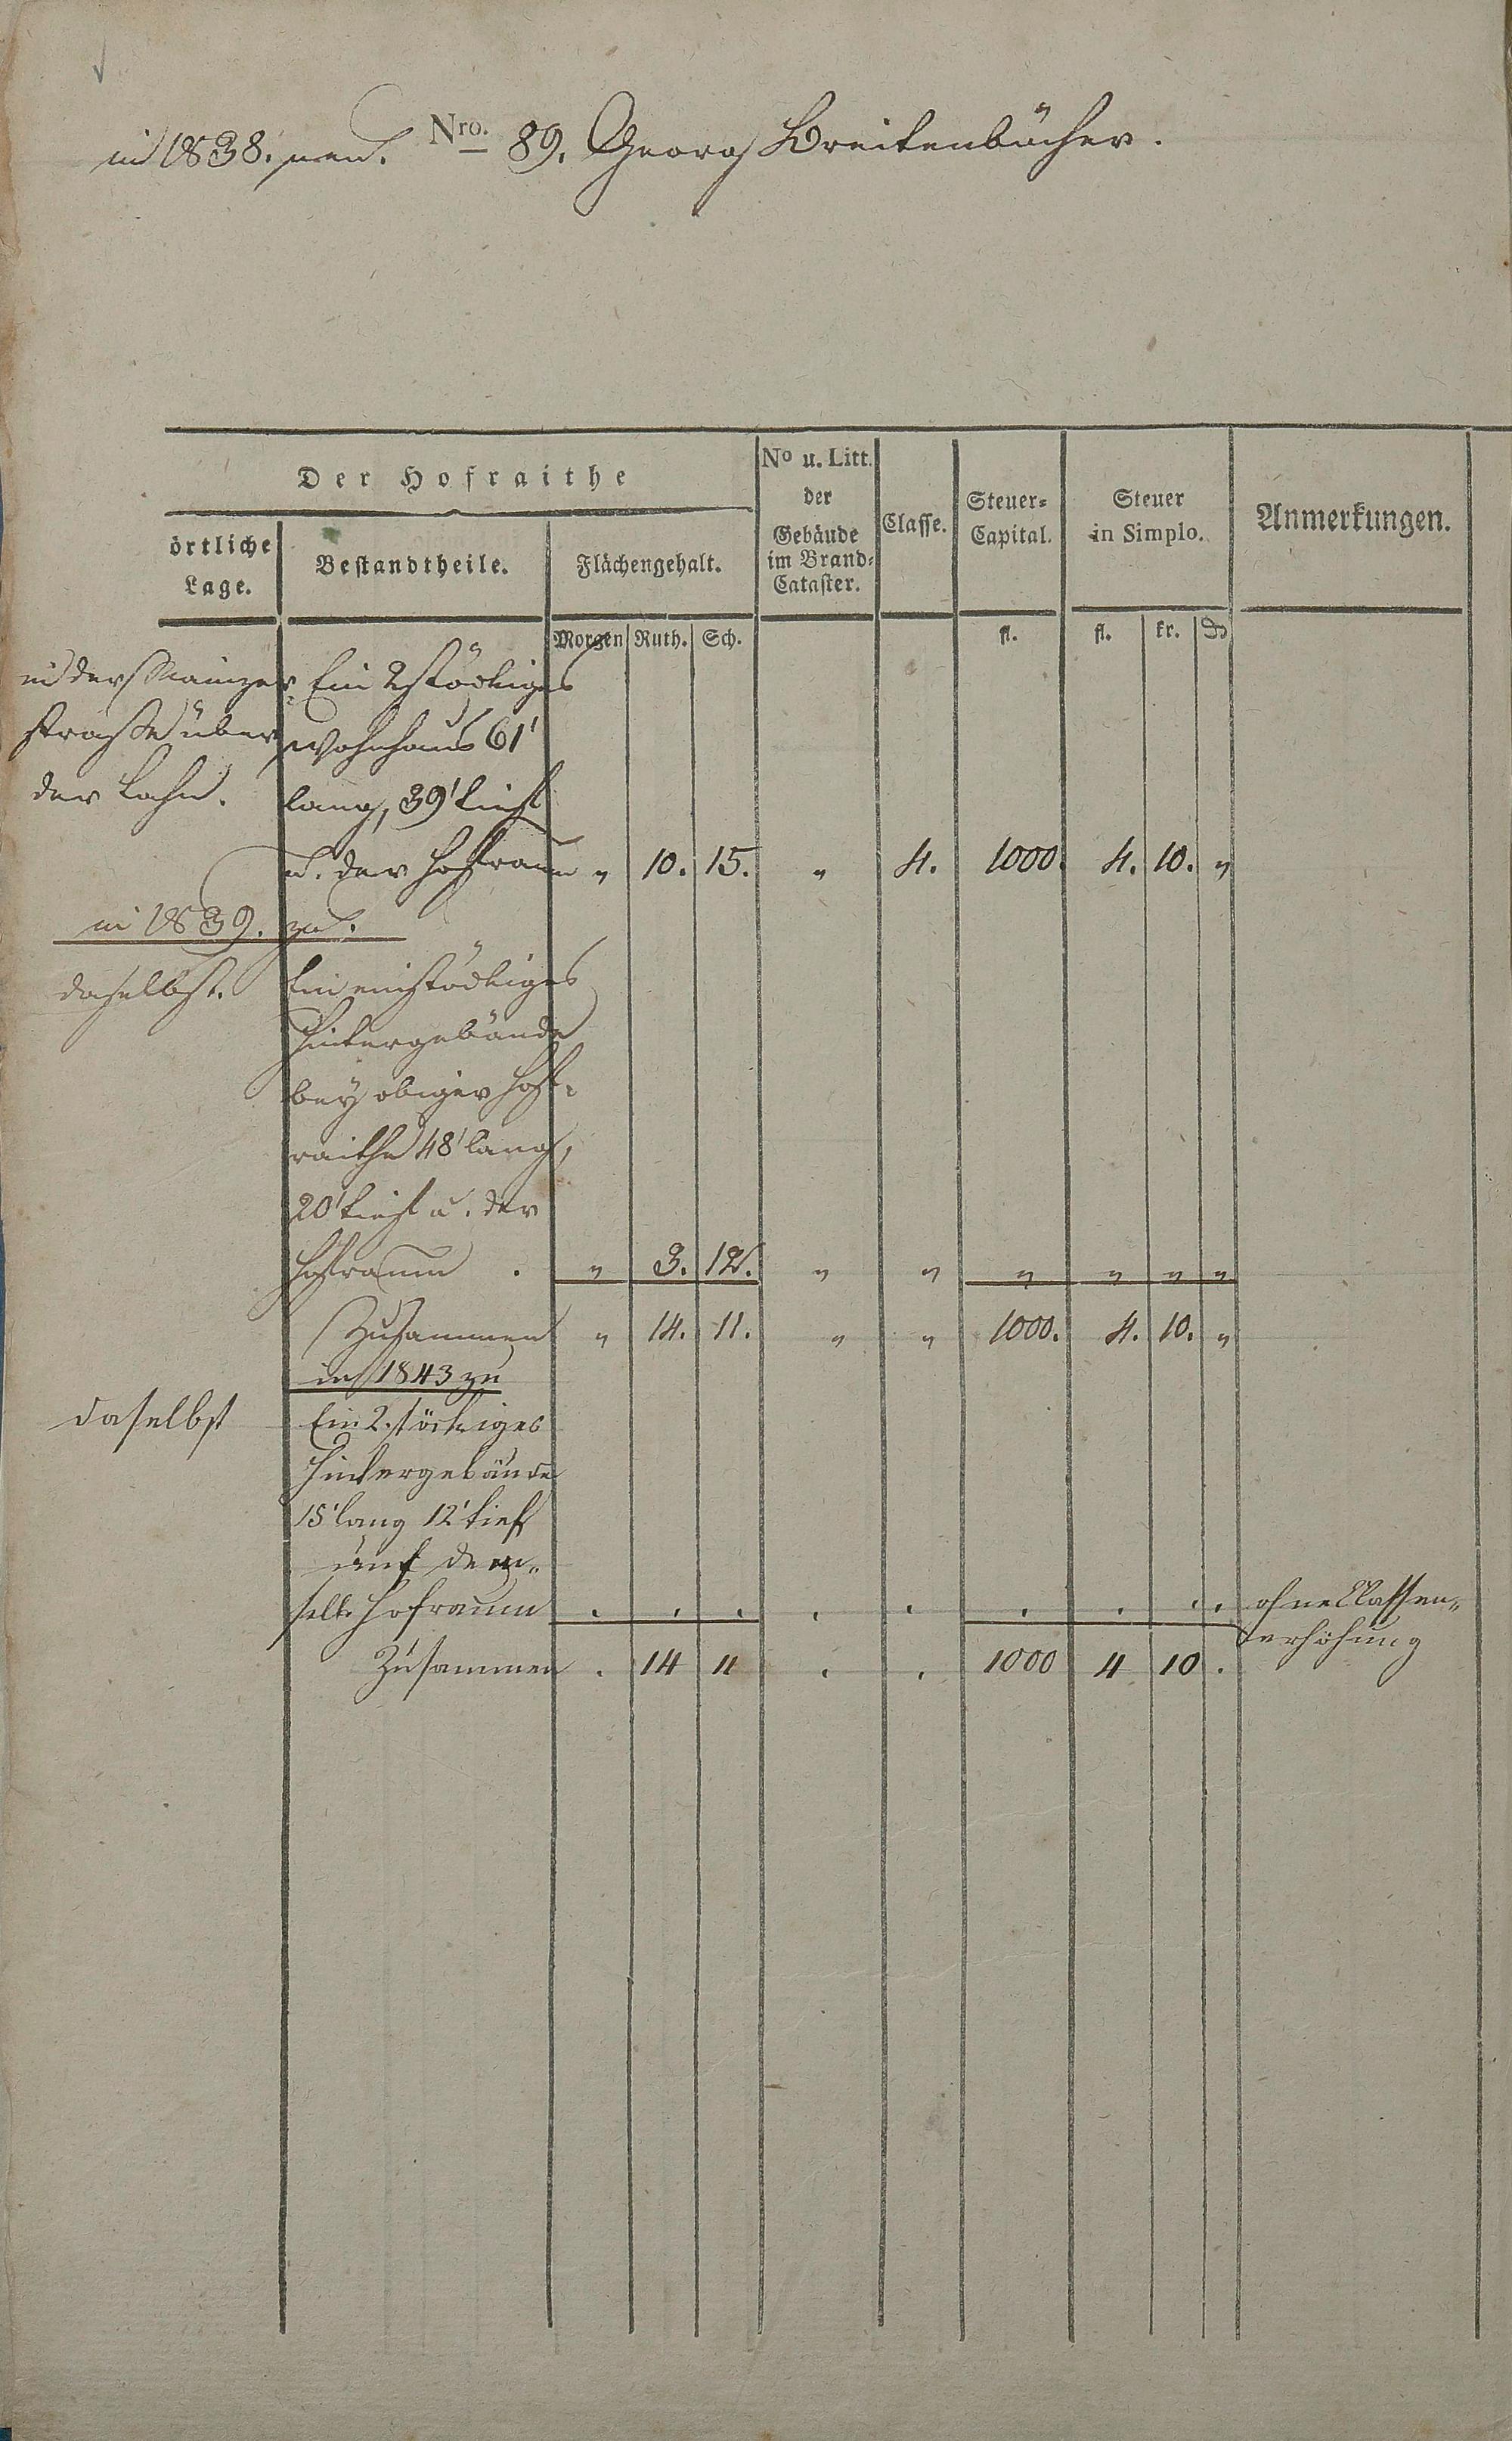 in 1838. neu. Nro. 89. Georg Breitenbücher.
Der Hofraithe
No u. Litt. der Gebäude im Brand-Cataster.
Classe.
Steuer-Capital.
Steuer in Simplo.
Anmerkungen.
örtliche Lage.
Bestandtheile.
Flächengehalt.
Morgen Ruth. Sch. fl. fl. kr. ₰
in der Mainzer Ein 2stöckiges
straße über Wohnhaus 61'
der Lahn. lang, 39' tief
u. der Hofraum " 10. 15. " 4. 1000. 4. 10. "
in 1839. zu.
daselbst. Ein einstöckiges
Hintergebäude
bey obiger Hof-
raithe 48' lang,
20' tief u. der
Hofraum . " 3. 12. " " " " " "
Zusammen " 14. 11. " " 1000. 4. 10. "
in 1843 zu
daselbst Ein 2.stöckiges
Hintergebäude
15' lang 12' tief
auf dem„
selb. Hofraum . . . . . . . . . ohne Classen„
erhöhung
Zusammen . 14 11 . . 1000 4 10 .